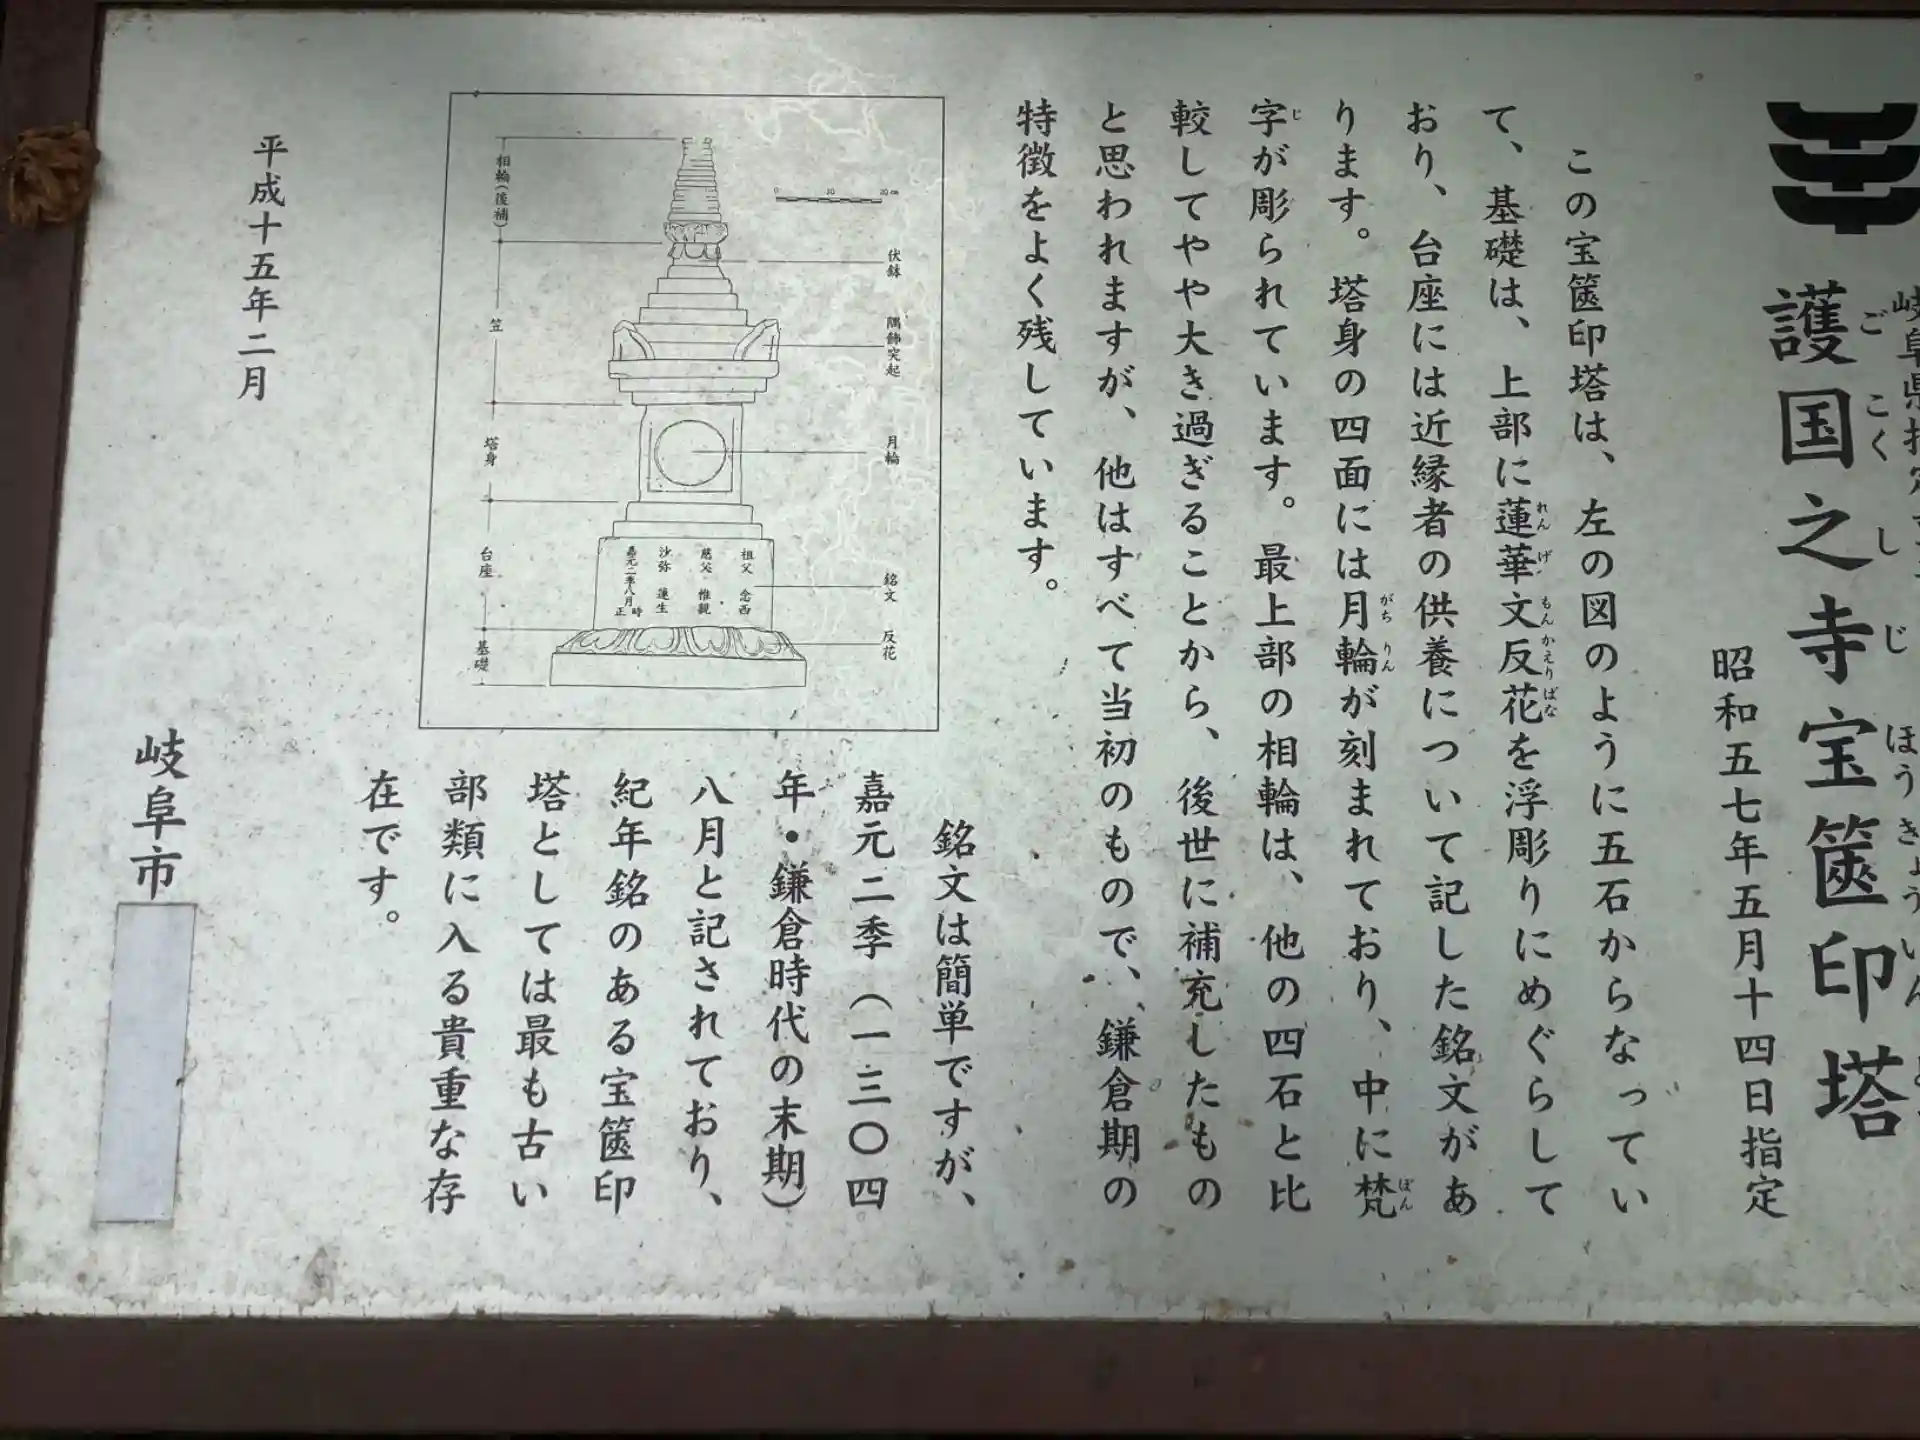 岐阜県指定
護国之寺宝篋印塔
ごこくしじほうきょういん
昭和五七年五月十四日指定
この宝篋印塔は、左の図のように五石からなってい
て、基礎は、上部に蓮華文反花を浮彫りにめぐらして
れんげもんかえりばな
おり、台座には近縁者の供養について記した銘文があ
ります。塔身の四面には月輪が刻まれており、中に梵
がちりん
ぼん
字が彫られています。最上部の相輪は、他の四石と比
じ
較してやや大き過ぎることから、後世に補充したもの
と思われますが、他はすべて当初のもので、鎌倉期の
特徴をよく残しています。
銘文は簡単ですが、
嘉元二季（一三〇四
年・鎌倉時代の末期）
八月と記されており、
紀年銘のある宝篋印
塔としては最も古い
部類に入る貴重な存
在です。
0 10 20cm
伏鉢
隅飾突起
月輪
銘文
反花
祖父 念西
慈父 惟観
沙弥 蓮生
嘉元二季八月 時正
相輪（後補）
笠
塔身
台座
基礎
平成十五年二月
岐阜市